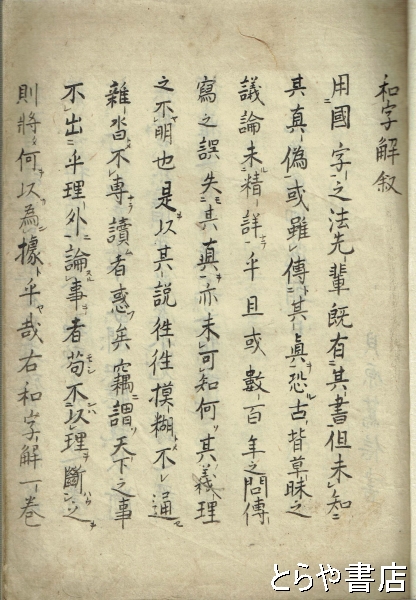 和字解叙
用國字之法先輩既有其書但未知
其真偽或雖傳其眞恐古昔草昧之
議論未精詳乎且或數百年之間傳
寫之誤失其真亦未可知何其義理
之不明也是以其説徃徃摸糊不通
雜沓不專讀者惑矣竊謂天下之事
不出乎理外論事者苟不以理斷之
則將何以為據乎哉右和字解一巻
とらや書店